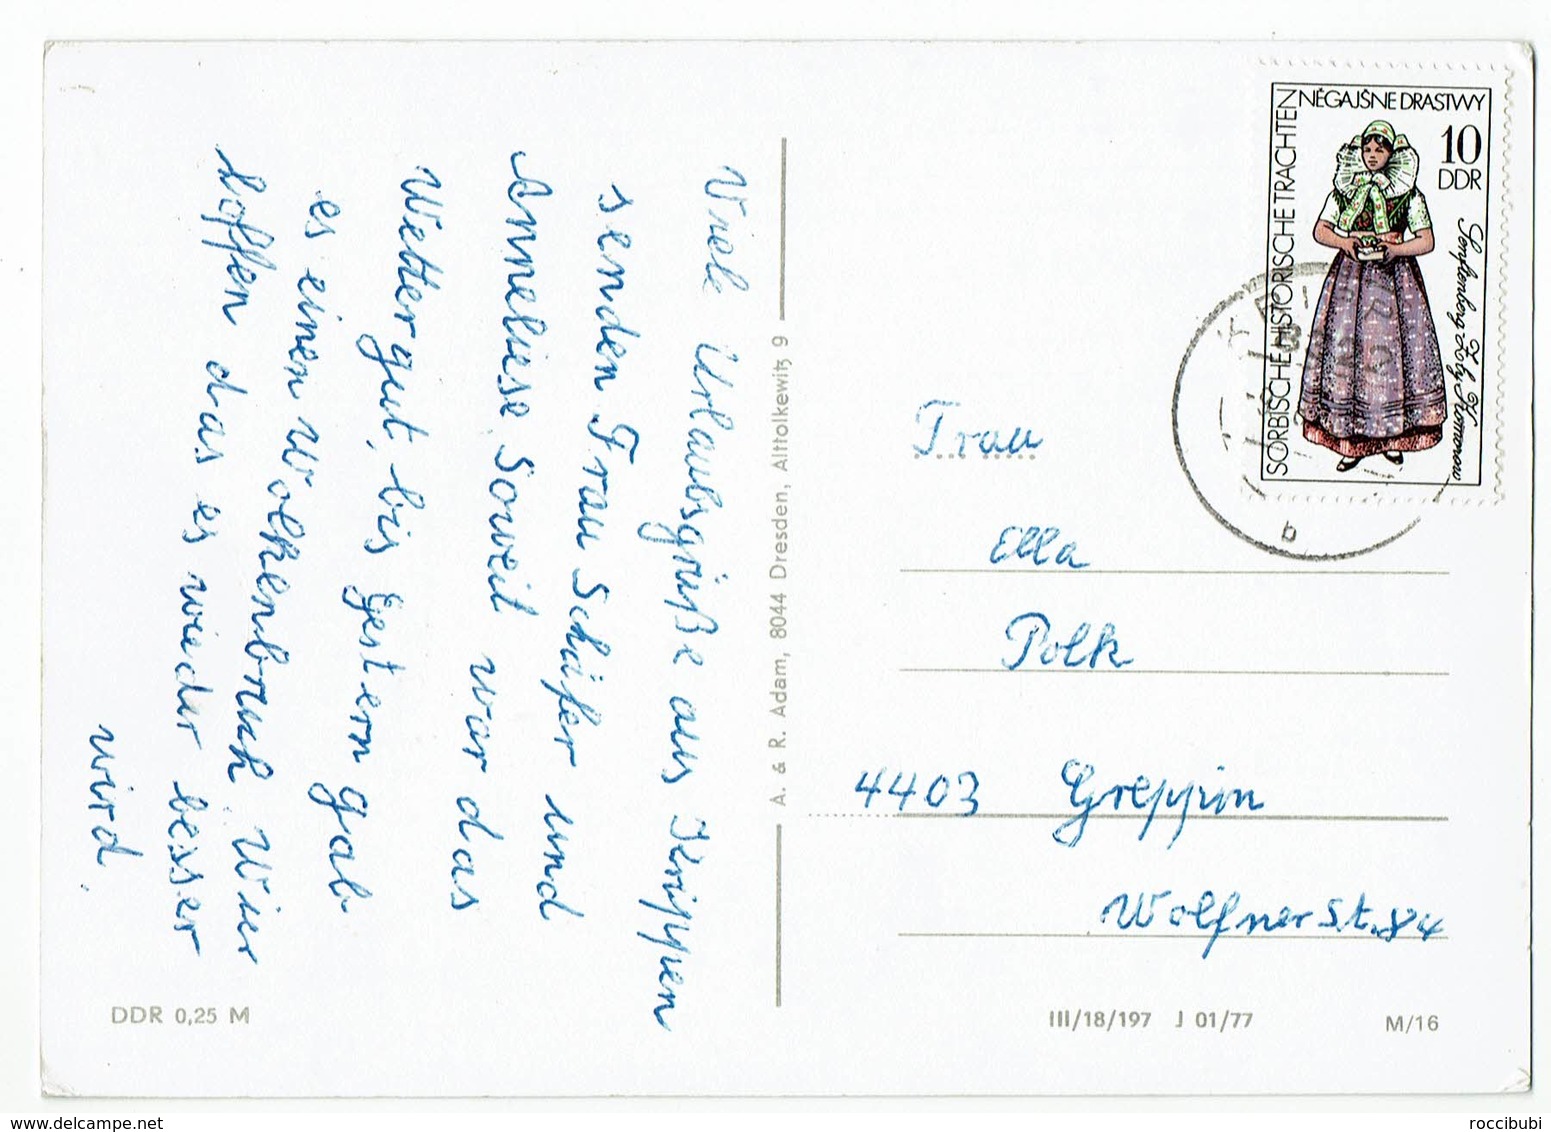 Viele Urlaubsgrüße aus Krippen
senden Frau Schäfer und
Anneliese. Soweil war das
Wetter gut, bis gestern gab
es einen Wolkenbruch. Wier
hoffen das es wieder besser
wird.
A. & R. Adam, 8044 Dresden, Alttolkewitz 9
SORBISCHE HISTORISCHE TRACHTEN
NĚGAJŠNE DRASTWY
10
DDR
Senftenberg Zły Komorow
b
Frau
Ella
Polk
4403 Greppin
Wolfner St. 84
DDR 0,25 M
III/18/197 J 01/77
M/16
www.delcampe.net
roccibubi